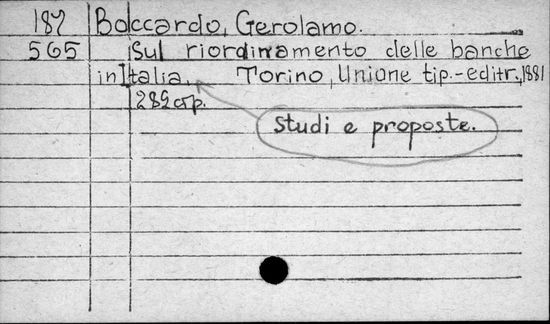 187 Boccardo, Gerolamo.
565 Sul riordinamento delle banche
in Italia. Torino, Unione tip.-editr., 1881
282 p.
Studi e proposte.